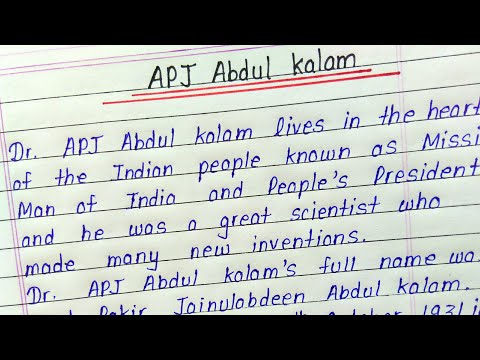 APJ Abdul kalam
Dr. APJ Abdul kalam lives in the heart
of the Indian people known as Missi
Man of India and People's President
and he was a great scientist who
made many new inventions.
Dr. APJ Abdul kalam's full name wa
Pakir Jainulabdeen Abdul kalam.
1931